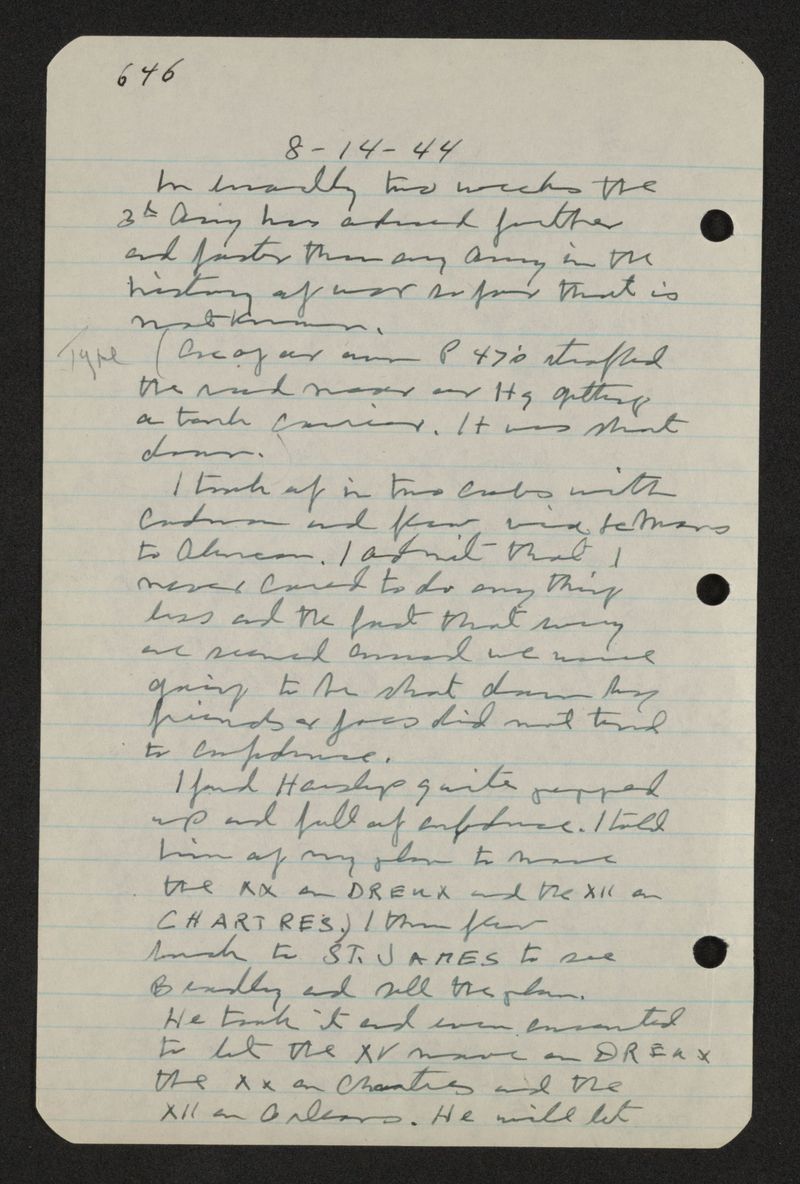 646
8-14-44
In exactly two weeks the
3d Army has advanced further
and faster than any Army in the
history of war so far that is
not known.
Type (One of our own P 47's straffed
the road near our Hq getting
a tank carrier. It was shot
down.
I took off in two cubs with
Codman and flew via Le Mans
to Alencon. I admit that I
never cared to do any thing
less and the fact that every
one seemed amused we were
going to be shot down by
friends or foes did not tend
to confidence.
I found Haislip quite pepped
up and full of confidence. I told
him of my plan to move
the XX on DREUX and the XII on
CHARTRES.) I then flew
back to ST. JAMES to see
Bradley and sell the plan.
He took it and even consented
to let the XV move on DREUX
the XX on Chartres and the
XII on Orleans. He will let